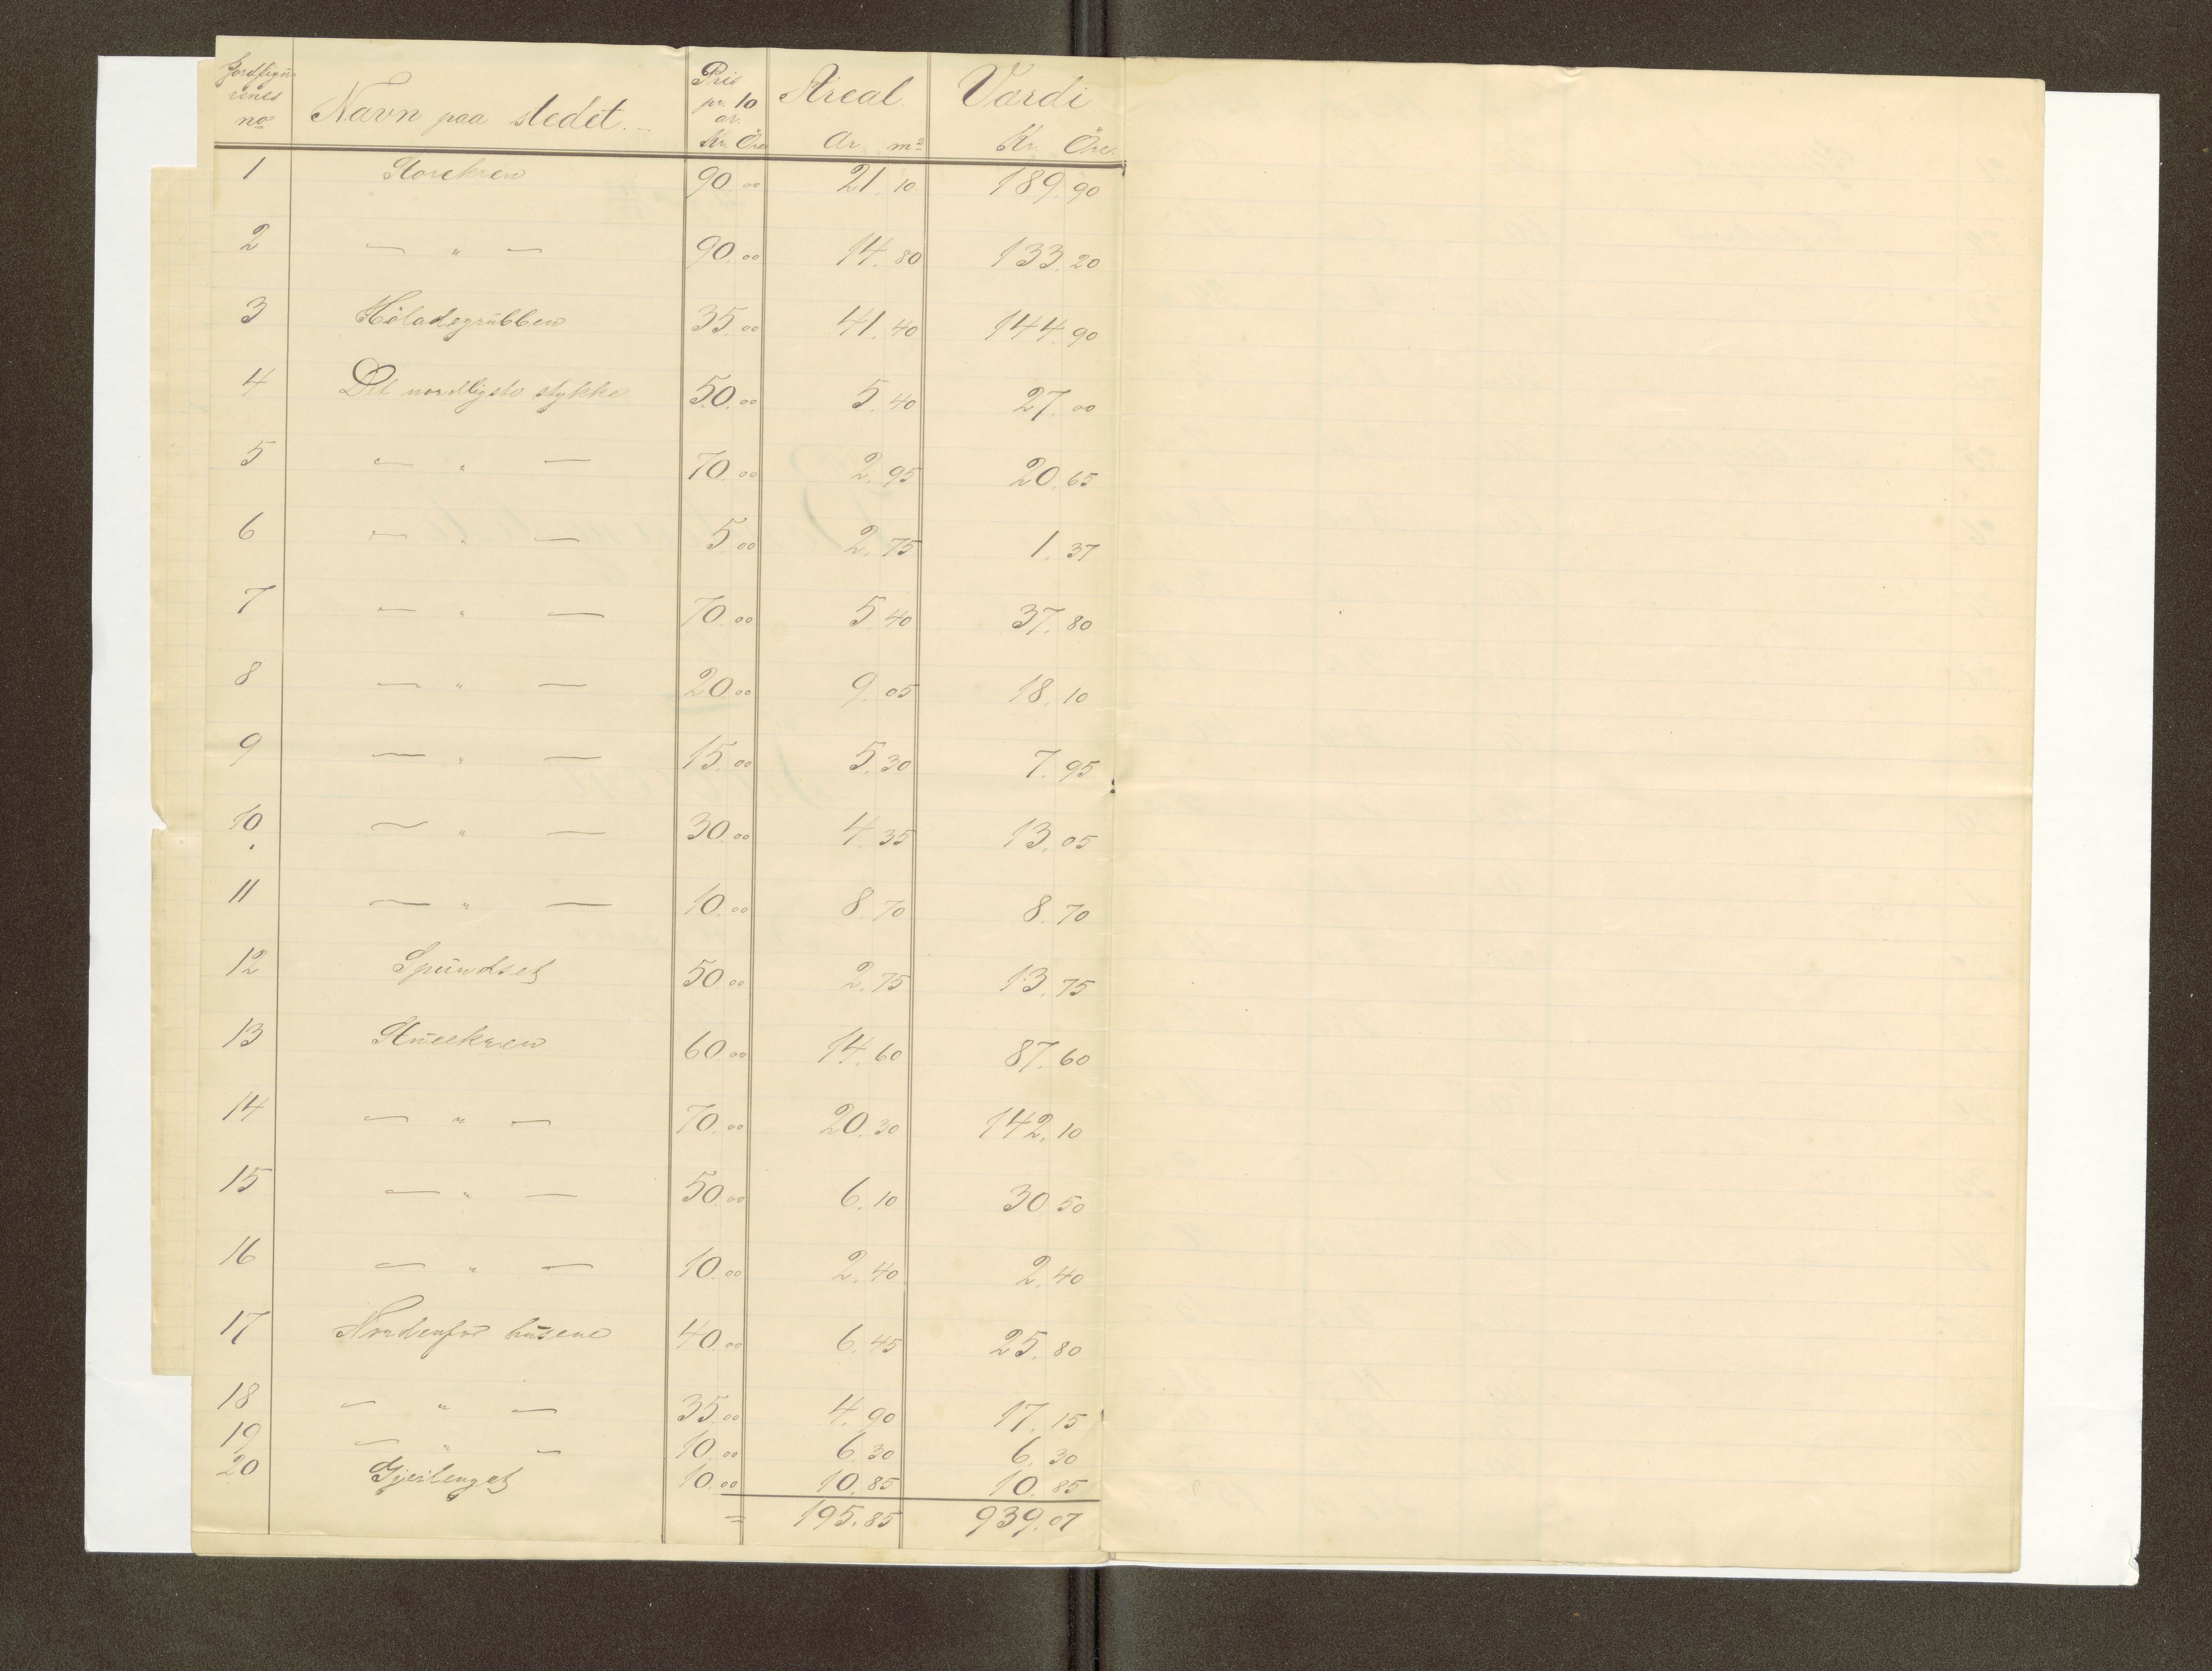 Jordfigurenes no Navn paa stedet. Pris pr. 10 ar. Kr. Öre Areal Ar m² Værdi Kr. Öre.
1 Storekren 90.00 21.10 189.90
2 — " — 90.00 14.80 133.20
3 Höladegrubben 35.00 41.40 144.90
4 Det nordligste stykke 50.00 5.40 27.00
5 — " — 70.00 2.95 20.65
6 — " — 5.00 2.75 1.37
7 — " — 70.00 5.40 37.80
8 — " — 20.00 9.05 18.10
9 — " — 15.00 5.30 7.95
10 — " — 30.00 4.35 13.05
11 — " — 10.00 8.70 8.70
12 50.00 2.75 13.75
13 60.00 14.60 87.60
14 — " — 70.00 20.30 142.10
15 — " — 50.00 6.10 30.50
16 — " — 10.00 2.40 2.40
17 Nordenfor husene 40.00 6.45 25.80
18 — " — 35.00 4.90 17.15
19 — " — 10.00 6.30 6.30
20 10.00 10.85 10.85
= 195.85 939.07